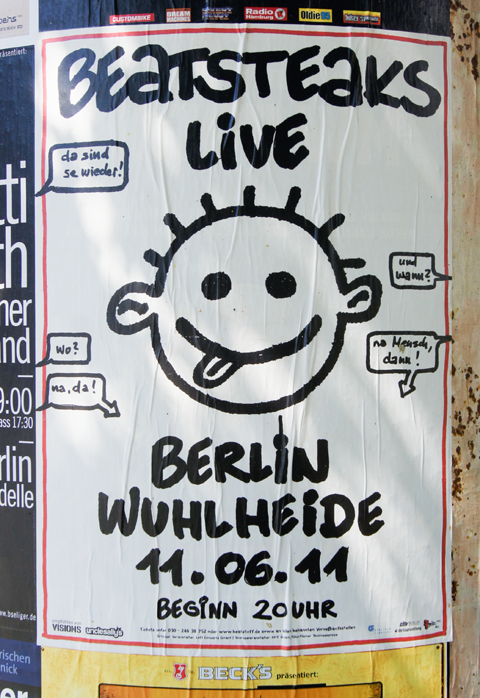 CUSTOMBIKE
DREAM MACHINES
Radio Hamburg
Oldie 95
BEATSTEAKS
LiVE
da sind
se wieder!
und
wann?
wo?
na, da!
na Mensch,
dann!
BERLIN
WUHLHEiDE
11.06.11
BEGINN 20UHR
VISIONS
undesally's
BECK'S präsentiert:
räsentiert:
tti
th
ner
and
9:00
ass 17:30
rlin
delle
www.bseliger.de
rischen
nick